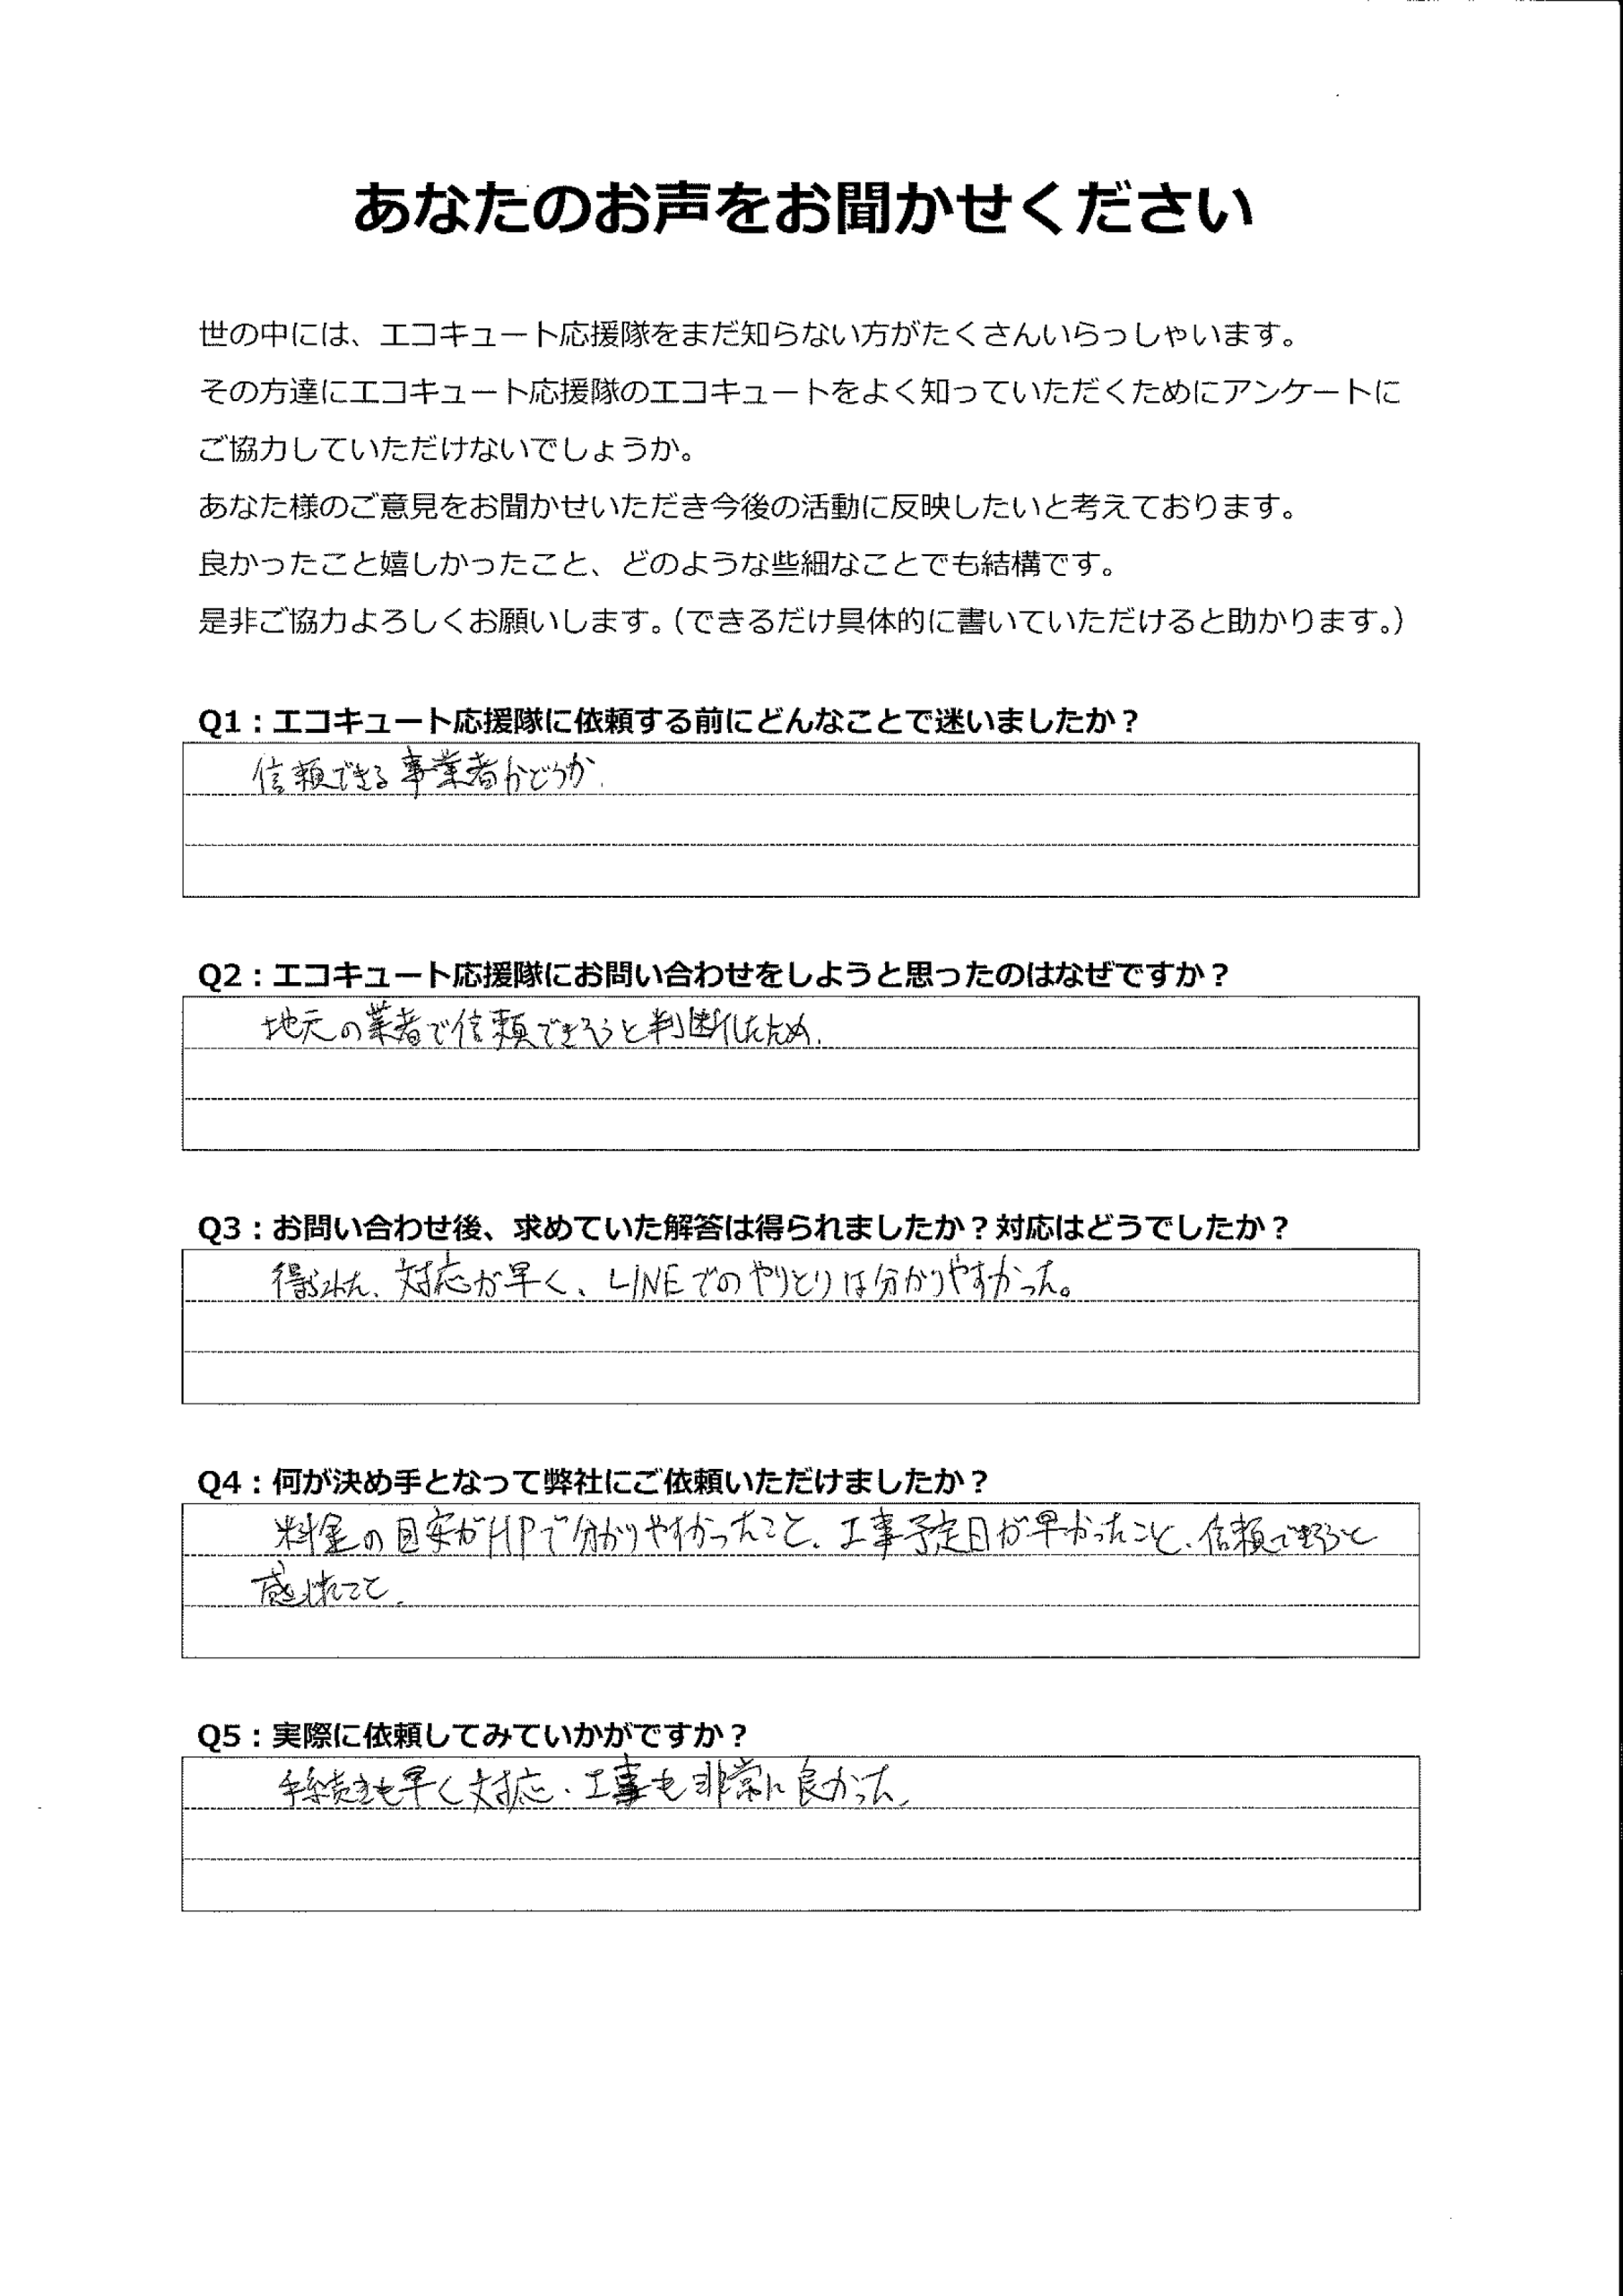 あなたのお声をお聞かせください
世の中には、エコキュート応援隊をまだ知らない方がたくさんいらっしゃいます。
その方達にエコキュート応援隊のエコキュートをよく知っていただくためにアンケートに
ご協力していただけないでしょうか。
あなた様のご意見をお聞かせいただき今後の活動に反映したいと考えております。
良かったこと嬉しかったこと、どのような些細なことでも結構です。
是非ご協力よろしくお願いします。（できるだけ具体的に書いていただけると助かります。）
Q1：エコキュート応援隊に依頼する前にどんなことで迷いましたか？
信頼できる事業者かどうか.
Q2：エコキュート応援隊にお問い合わせをしようと思ったのはなぜですか？
地元の業者で信頼できそうと判断したため.
Q3：お問い合わせ後、求めていた解答は得られましたか？対応はどうでしたか？
得られた、対応が早く、LINEでのやりとりは分かりやすかった。
Q4：何が決め手となって弊社にご依頼いただけましたか？
料金の目安がHPで分かりやすかったこと、工事予定日が早かったこと、信頼できそうと
感じれこと.
Q5：実際に依頼してみていかがですか？
手続きも早く対応・工事も非常に良かった、